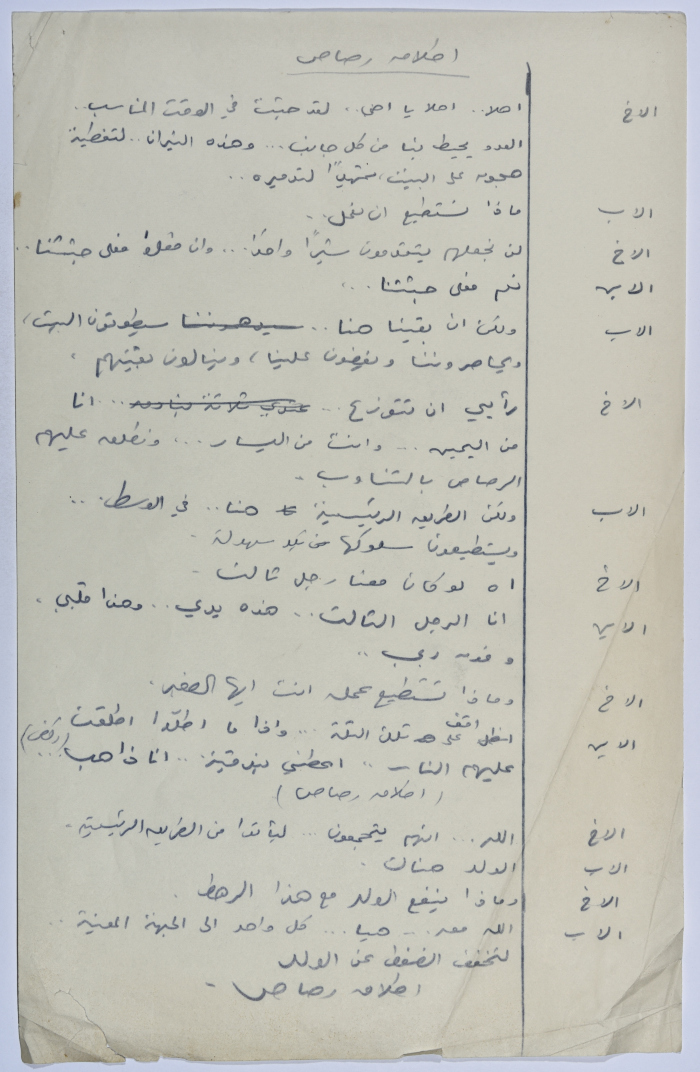 اطلاق رصاص
الاخ اهلا.. اهلا يا اخي.. لقد جئت في الوقت المناسب..
العدو يحيط بنا من كل جانب... وهذه النيران.. لتغطية
هجومه على البيت، تمهيدًا لتدميره..
الاب ماذا نستطيع ان نفعل..
الاخ لن نجعلهم يتقدمون شبرًا واحدًا... وان فعلوا فعلى جثثنا..
الابن نعم فعلى جثثنا..
الاب ولكن ان بقينا هنا.. سيطوقون البيت،
ويحاصروننا ويقضون علينا، وينالون بغيتهم.
الاخ رأيي ان نتوزع... عندي ثلاثة بنادق... انا
من اليمين... وانت من اليسار... ونطلق عليهم
الرصاص بالتناوب.
الاب ولكن الطريق الرئيسية هنا.. في الوسط...
ويستطيعون سلوكها بكل سهولة.
الاخ اه لو كان معنا رجل ثالث.
الابن انا الرجل الثالث.. هذه يدي.. وهذا قلبي.
وفوقه ربي..
الاخ وماذا تستطيع عمله انت ايها الصغير.
الابن اقف على تلك التلة... واذا ما اطلّوا اطلقت
عليهم النار.. اعطني بندقية... انا ذاهب... (يركض)
(اطلاق رصاص)
الاخ الله... انهم يتجمعون... ليأتوا من الطريق الرئيسية.
الاب الولد هناك.
الاخ وماذا ينفع الولد مع هذا الرهط.
الاب الله معه... هيا... كل واحد الى الجبهة المعنية..
لنخفف الضغط عن الولد
اطلاق رصاص.